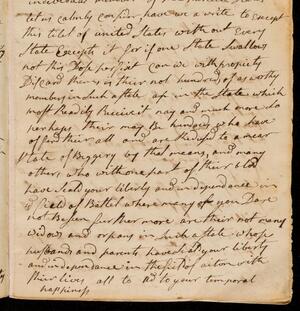 let us calmly consider, have we a write to Except
this titel of united States with out Every
State Excepts it for if one State Swallows
not this Dose perfect can we with propriety
Discard them is their not hundreds of as worthy
members in such a State as in the State which
most Readily Receive it nay and much more so
perhaps their may Be hundreds who have
offered their all and are Reduced to a mear
State of Beggery by that means, and many
others who with one part of their blod
have Seald your liberty and independance in
a field of Battel where many of you Dare
not Be seen further more are their not many
widows and orpans in Such a State whose
husbands and parents have Seald your liberty
and independance in the field of action with
their lives all to Ad to your temporal
happiness